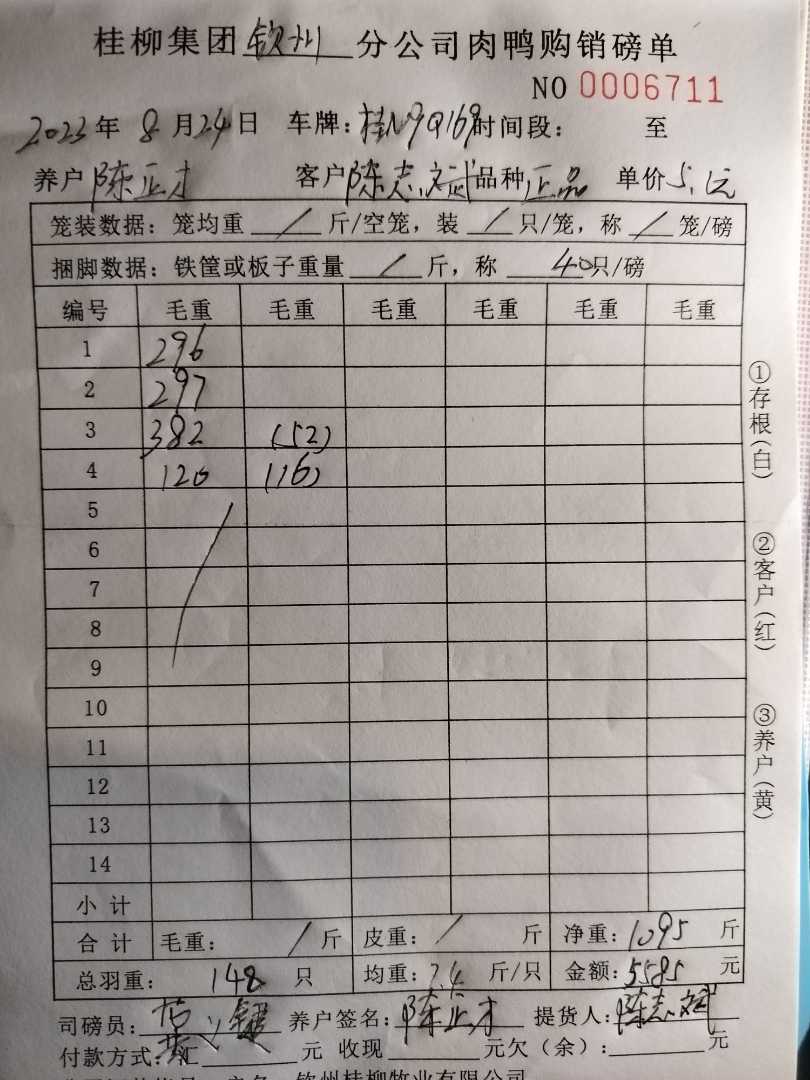 桂柳集团钦州分公司肉鸭购销磅单
NO 0006711
2023年 8月24日 车牌:桂N9Q169 时间段: 至
养户 陈正才 客户 陈志斌 品种 正品 单价 5.1元
笼装数据:笼均重 / 斤/空笼,装 / 只/笼,称 / 笼/磅
捆脚数据:铁筐或板子重量 / 斤,称 40只/磅
编号 毛重 毛重 毛重 毛重 毛重 毛重
1 296
2 297
3 382 (52)
4 120 (16)
5
6
7
8
9
10
11
12
13
14
小计
合计 毛重: / 斤 皮重: / 斤 净重:1095 斤
总羽重: 148 只 均重:7.4 斤/只 金额:5585 元
司磅员: 养户签名:陈正才 提货人:陈志斌
付款方式:汇 元 收现 元欠(余): 元
钦州桂柳牧业有限公司
①存根(白)
②客户(红)
③养户(黄)